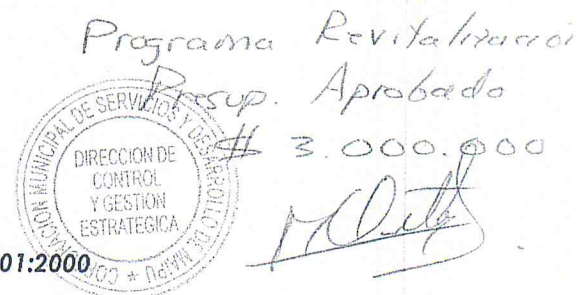 Programa Revitalizació
Presup. Aprobado
$ 3.000.000
CORPORACION MUNICIPAL DE SERVICIOS Y DESARROLLO DE MAIPU *
DIRECCION DE
CONTROL
Y GESTION
ESTRATEGICA
01:2000